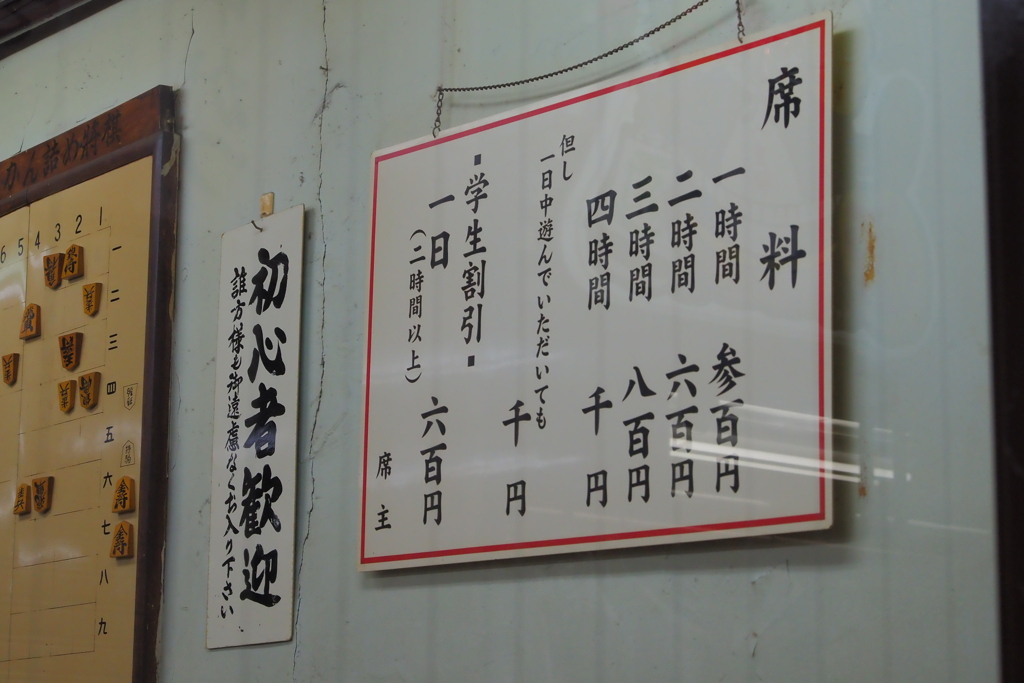 席料
一時間 参百円
二時間 六百円
三時間 八百円
四時間 千円
但し
一日中遊んでいただいても
千円
・学生割引・
一日 六百円
(二時間以上)
席主
初心者歓迎
誰方様も御遠慮なくお入り下さい
かん詰め将棋
6 5 4 3 2 1
一
二
三
四
五
六
七
八
九